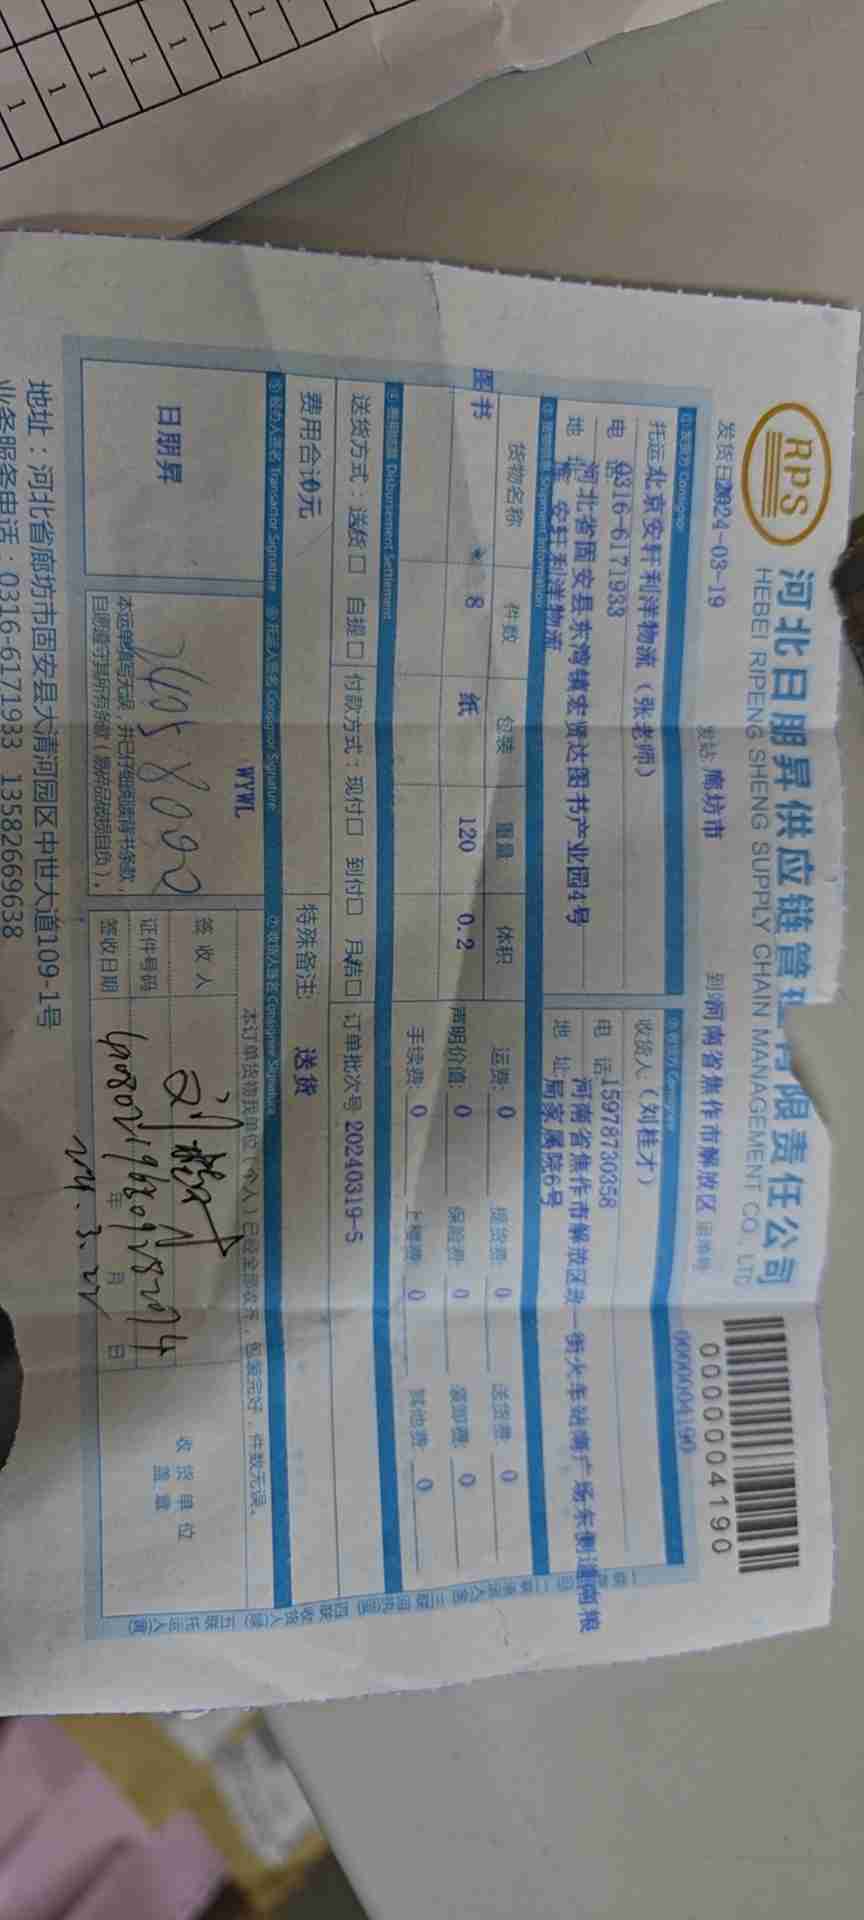 1 1 1 1 1 1 1
RPS
河北日朋昇供应链管理有限责任公司
HEBEI RIPENG SHENG SUPPLY CHAIN MANAGEMENT CO., LTD
0000004190
发货日 2024-03-19
发站: 廊坊市
到 河南省焦作市解放区
运单号:
0000004190
① 发货方 Consignor
② 收货方 Consignee
托运 北京安轩利洋物流（张老师）
收货人:（刘桂才）
电 0316-6171933
电 话 15978730358
地 址 河北省固安县东湾镇宏贤达图书产业园4号
安轩利洋物流
地 址 河南省焦作市解放区 一街火车站南广场东侧道南粮
局家属院6号
③ Shipment Information
货物名称 件数 包装 重量 体积
运费: 0 提货费: 0 送货费: 0
图书 8 纸 120 0.2
声明价值: 0 保险费: 0 装卸费: 0
手续费: 0 上楼费: 0 其他费: 0
④ 费用结算 Disbursement Settlement
送货方式：送货口 自提口
付款方式：现付口 到付口 月结口
订单批次号 20240319-S
费用合计 0元
特殊备注: 送货
⑤ 经办人签名 Transactor Signature
⑥ 托运人签名 Consignor Signature
⑦ 收货人签名 Consignee Signature
日朋昇
WYWL
本订单货物我单位（个人）已经全部收齐，包装完好，件数无误。
签收人
证件号码
签收日期
年 月 日
24.3.22
收货单位
盖章
本运单填写无误，并已仔细阅读背书条款，
自愿遵守其所有条款（易碎品破损自负）。
地址：河北省廊坊市固安县大清河园区中世大道109-1号
业务服务电话：0316-6171933 13582669638